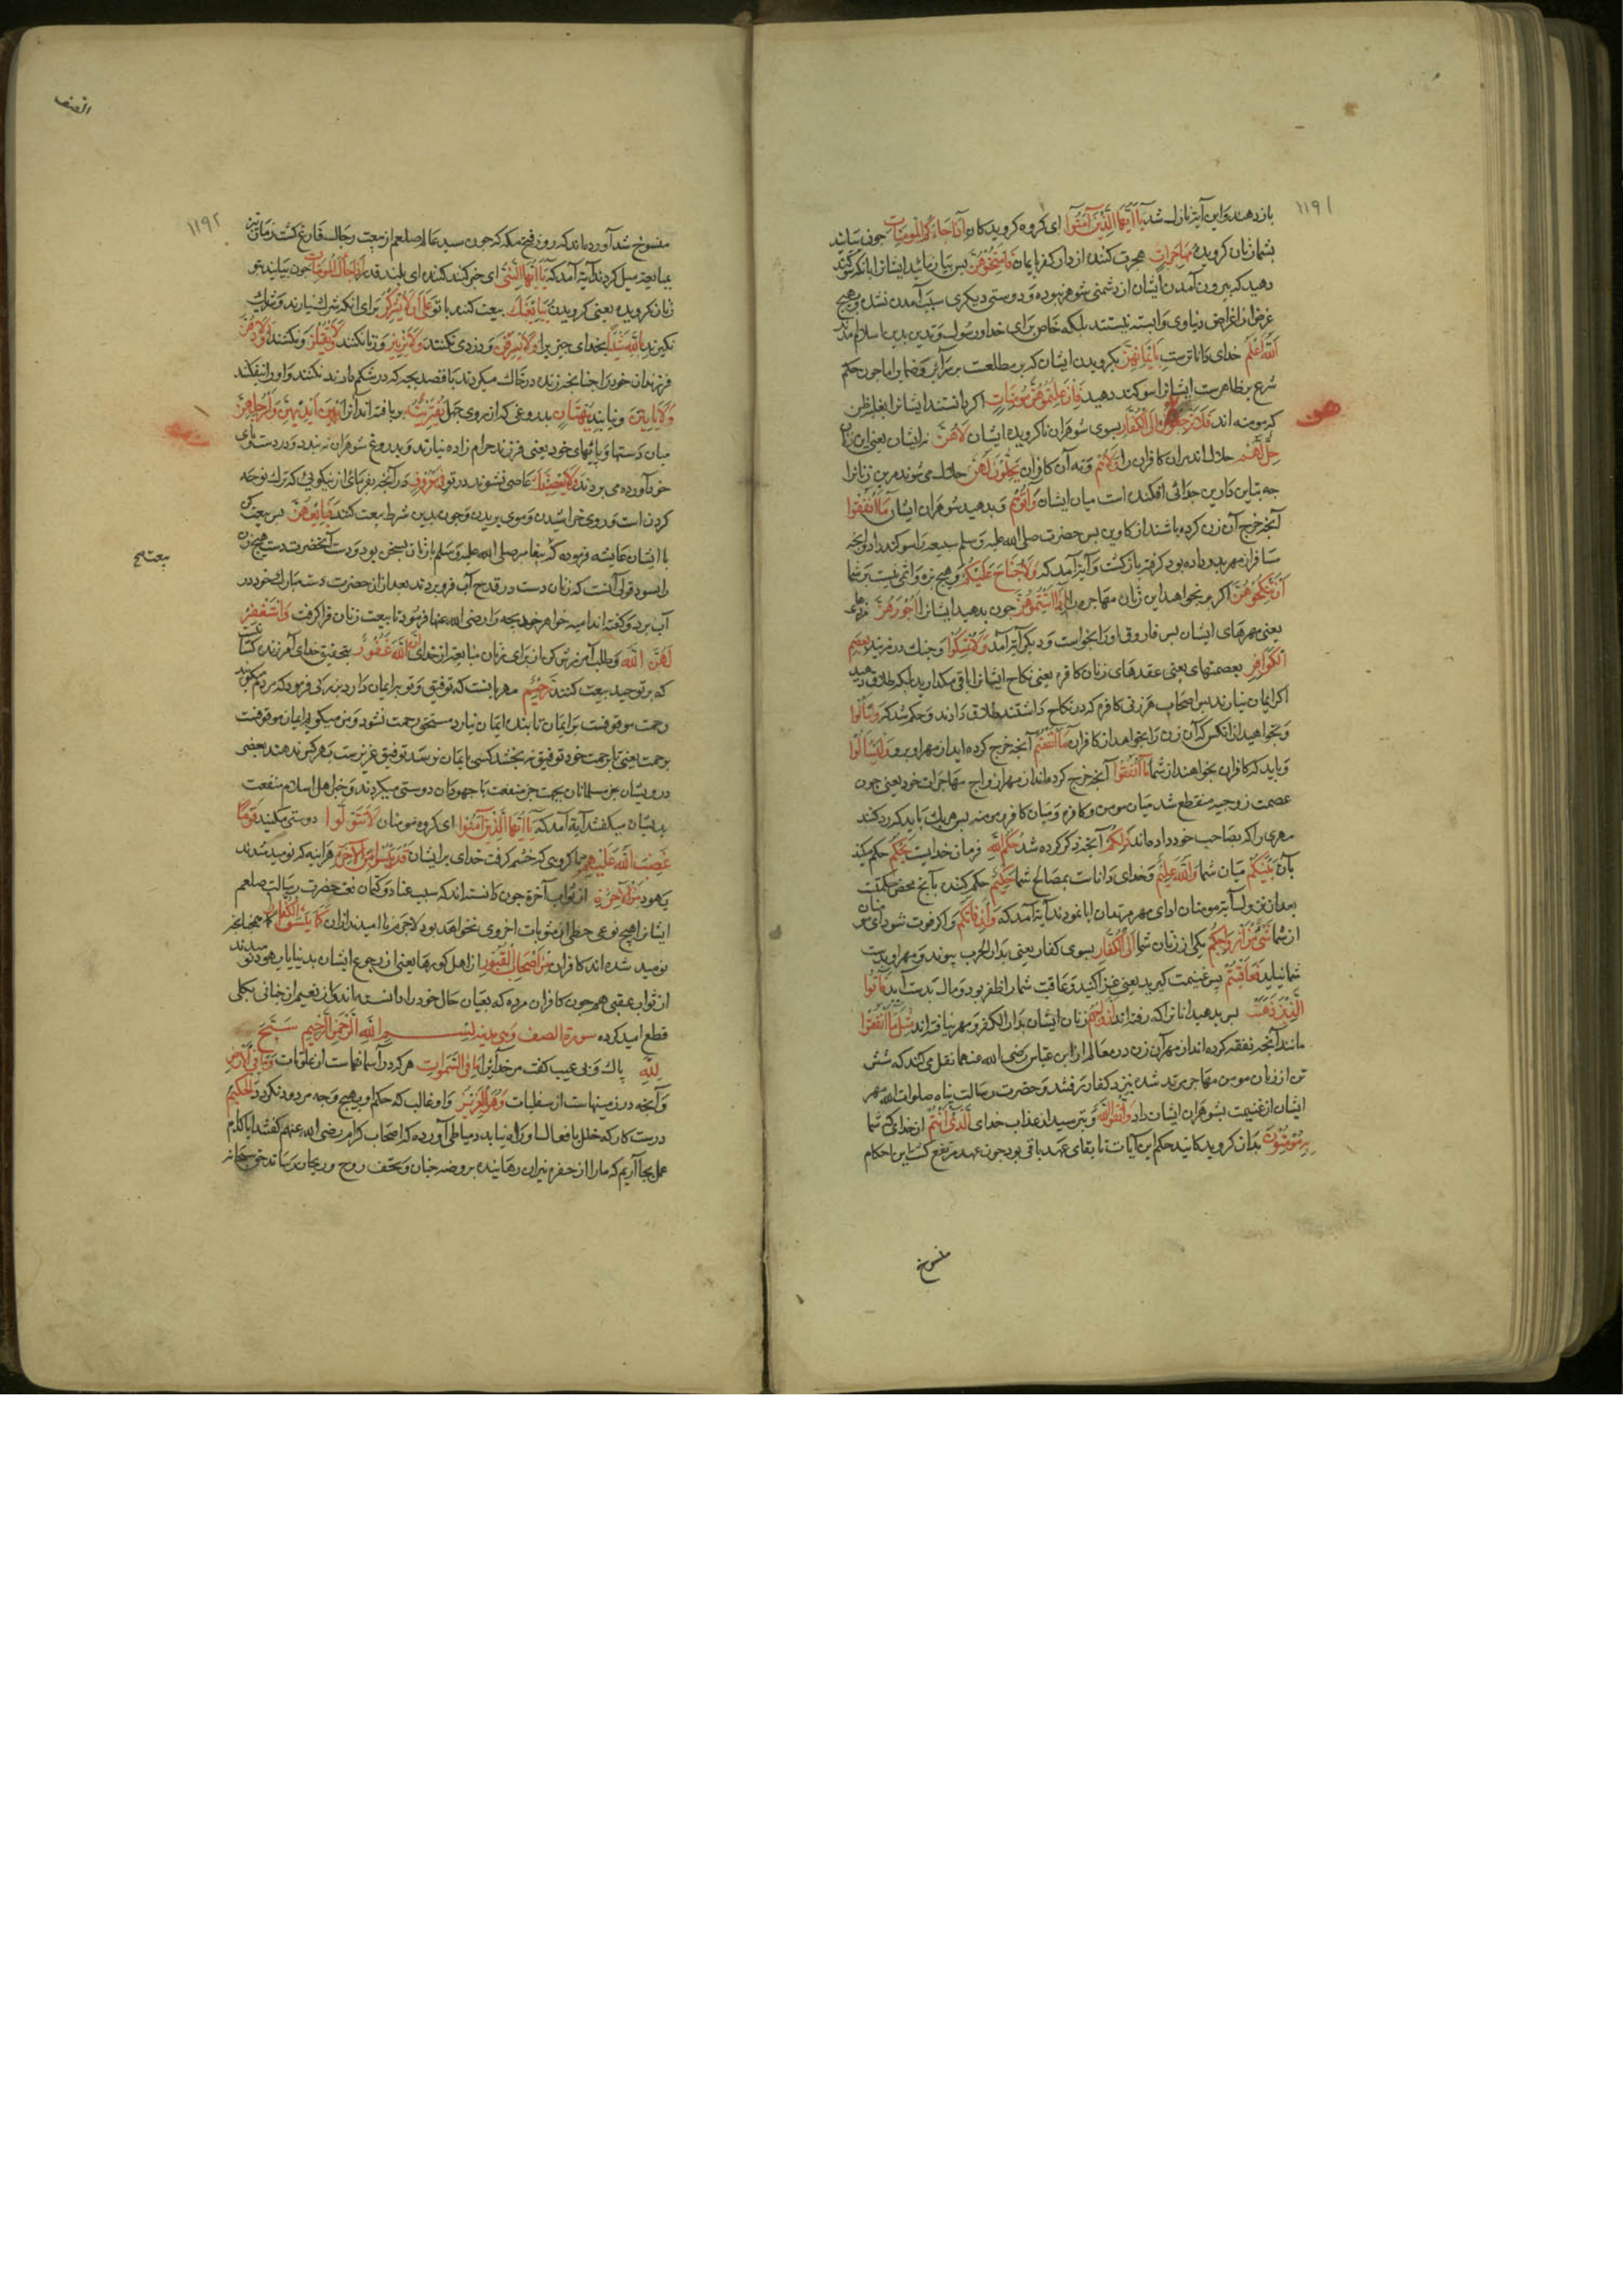 ١١٩١
بازدهند و این آیه نازل شد یا ایها الذین آمنوا ای کروه کرویدکان اذا جاءکم المومنات چون بیایند
بشما زنان کرویده مهاجرات هجرت کننده از دار کفر بایمان فامتحنوهن پس بیازمائید ایشانرا بانکه سوکند
دهید که بیرون آمدن ایشان از دشمنی شوهر نبوده و دوستی دیکری سبب آمدن نشده و بهیچ
غرض از اغراض دنیاوی وابسته نیستند بلکه خاص برای خدا و رسول و تدین بدین اسلام آمده‌اند
الله اعلم خدای داناترست بایمانهن بکرویدن ایشان که بر مطلعست بر سرایر و ضمایر اما چون حکم
شرع بر ظاهرست ایشانرا سوکند دهید فان علمتموهن مومنات اکر دانستید ایشانرا بغلبه ظن
که مومنه اند فلا ترجعوهن الی الکفار بسوی شوهران ناکرویده ایشان لا هن نه ایشان یعنی این زنان
حل لهم حلال اند مران کافران را ولا هم و نه آن کافران یحلون لهن حلال می شوند مرین زنانرا
چه تباین دارین جدائی افکنده است میان ایشان وآتوهم و بدهید شوهران ایشان ما انفقوا
آنچه خرج آن زن کرده باشند از کاوین پس حضرت صلی الله علیه وسلم سبیعه را سوکند داد و آنچه
مسافر از مهر بدو داده بود کرفته بازکشت و آیه آمد که ولا جناح علیکم و هیچ بزه و اثمی نیست بر شما
ان تنکحوهن اکر بخواهید این زنان مهاجره را اذا آتیتموهن چون بدهید ایشانرا اجورهن
یعنی مهرهای ایشان پس فاروق او را بخواست و دیکر آیه آمد ولا تمسکوا و چنک در مزنید بعصم
الکوافر بعصمتهای یعنی عقدهای زنان کافره یعنی نکاح ایشانرا باقی مکدارید بلکه طلاق دهید
اکر ایمان نیارند پس اصحاب هر زنی کافره که در نکاح داشتند طلاق دادند و حکم شد که وسئلوا
و بخواهید از آنکس که آن زن را بخواهد از کافران ما انفقتم آنچه خرج کرده اید از مهر او برو ولیسئلوا
و باید که کافران بخواهند از شما ما انفقوا آنچه خرج کرده‌اند از مهر ازواج مهاجرات خود یعنی چون
عصمت زوجیه منقطع شد میان مومن و کافره و میان کافر و مومنه پس هر یک باید که رد کنند
مهری را که بصاحب خود داده‌اند ذلکم آنچه ذکر کرده شد حکم الله فرمان خدایست یحکم حکم میکند
بآن بینکم میان شما والله علیم و خدای داناست بمصالح شما حکیم حکم کننده بآنچ محض حکمتست
بعد از نزول آیه مومنان ادای مهر مرتدان ابا نمودند آیه آمد که وان فاتکم و اکر فوت شود ای مومنان
از شما شیء من ازواجکم یکی از زنان شما الی الکفار بسوی کفار یعنی بدار الحرب پیوندد و مهر او بدست
شما نیاید فعاقبتم پس غنیمت کیرید یعنی غزا کنید و عاقبت شما را ظفر بود و مال بدست آید فآتوا
الذین ذهبت پس بدهید انانرا که رفته اند ازواجهم زنان ایشان بدار الکفر و مهر نیافته اند مثل ما انفقوا
مانند آنچه نفقه کرده اند از مهر آن زن در معالم از ابن عباس رضی الله عنهما نقل می کند که شش
تن از زنان مومن مهاجر مرتد شده بنزد کفار رفتند و حضرت رسالت پناه صلوات الله مهر
ایشان از غنیمت بشوهران ایشان داد واتقوا الله و بترسید از عذاب خدای الذی انتم از خدای که شما
به مومنون بدان کرویدکانید حکم این آیات تا بقای عهد باقی بود چون عهد مرتفع کشت این احکام
منسوخ
الصف
١١٩٢
منسوخ شد آورده‌اند که روز فتح مکه که چون سید عالم صلعم از بیعت رجال فارغ کشت زنان نیز
بمبایعه میل کردند آیه آمد که یا ایها النبی ای خبر کننده ای بلند قدر اذا جاءک المومنات چون بیایند بتو
زنان کرویده یعنی کرویدن یبایعنک بیعت کنند با تو علی ان لا یشرکن برای انکه شرک نیارند و شریک
نکیرند بالله شیئا بخدای چیزیرا ولا یسرقن و دزدی نکنند ولا یزنین و زنا نکنند ولا یقتلن و نکشند اولادهن
فرزندان خود را چنانچه زنده در خاک میکردند یا قصد بچه که در شکم دارند نکنند و او را نیفکنند
ولا یاتین و نیایند ببهتان بدروغی که از روی جهل یفترینه بر بافته اند آنرا بین ایدیهن وارجلهن
میان دستها و پایهای خود یعنی فرزند حرام زاده نیارند و بدروغ بر شوهران نبندد و در دست و پای
خود آورده می بردند ولا یعصینک عاصی نشوند در تو فی معروف در آنچه بفرمای از نیکوئی که ترک نوحه
کردن است و روی خراشیدن و موی بریدن و چون بدین شرط بیعت کنند فبایعهن پس بیعت کن
با ایشان عایشه فرموده که پیغامبر صلی الله علیه وسلم با زنان بسخن بود و دست آنحضرت دست هیچ زن
را نسود و قولی آنست که زنان دست در قدح آب فرو بردند بعد از آن حضرت دست مبارک خود در
آب برد و کفته اند امیمه خواهر خدیجه را رضی الله عنها فرمود تا بیعت زنان فرا کرفت واستغفر
لهن الله و طلب آمرزش کن از برای زنان مبایعه از خدای ان الله غفور بتحقیق خدای آمرزنده کسانی
که بر توحید بیعت کنند رحیم مهربانست که توفیق وی بر ایمان دارد بزرکی فرموده که مردم میکویند
رحمت موقوفست بر ایمان تا بنده ایمان نیارد مستحق رحمت نشود و من میکویم ایمان موقوفست
برحمت یعنی تا برحمت خود توفیق نبخشد کسی بایمان نرسد توفیق عزیزست و بهر کس ندهند بعضی
درویشان مسلمانان بجهت جر منفعت با جهودان دوستی میکردند و خبر اهل اسلام
بدیشان میکفتند آیه آمد که یا ایها الذین آمنوا ای کروه مومنان لا تتولوا دوستی مکنید قوما
غضب الله علیهم با کروهی که خشم کرفت خدای بر ایشان قد یئسوا من الآخرة هر آینه که نومید شدند
یهود من الآخرة از ثواب آخره چون دانسته اند که بسبب عناد و کتمان نعت حضرت رسالت صلعم
ایشانرا هیچ نوعی حظی از مثوبات اخروی نخواهد بود لاجرم نا امیدند از آن کما یئس الکفار همچنانچه
نومید شده اند کافران من اصحاب القبور از اهل کورها یعنی از رجوع ایشان بدنیا یا یهود نومیدند
از ثواب عقبی همچون کافران مرده که بعیان حال خود را دانسته‌اند و از نعیم ان جهانی بکلی
قطع امید کرده سورة الصف وهی مدنیة بسم الله الرحمن الرحیم سبح
لله پاک و بی عیب کفت مر خدایرا ما فی السموات هر که در آسمانهاست از علویات وما فی الارض
و آنچه در زمینهاست از سفلیات وهو العزیز و او غالب که حکم او بهیچ وجه مردود نکردد الحکیم
درست کار که خلل بافعال او راه نیابد دمیاطی آورده که اصحاب کرام رضی الله عنهم کفتند ایا کدام
عمل بجا آریم که ما را از حفره نیران رهانیده بروضه جنان و تحف روح و ریحان رساند حق سبحانه